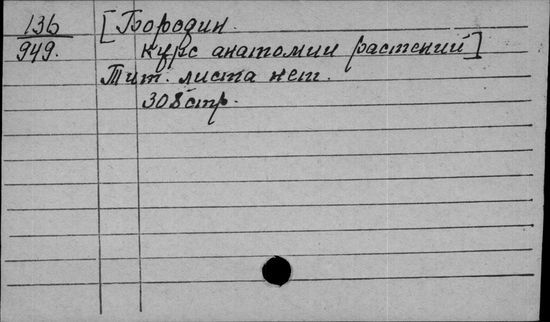 136
949.
[Бородин.
Курс анатомии растений]
Тит. листа нет.
308 стр.